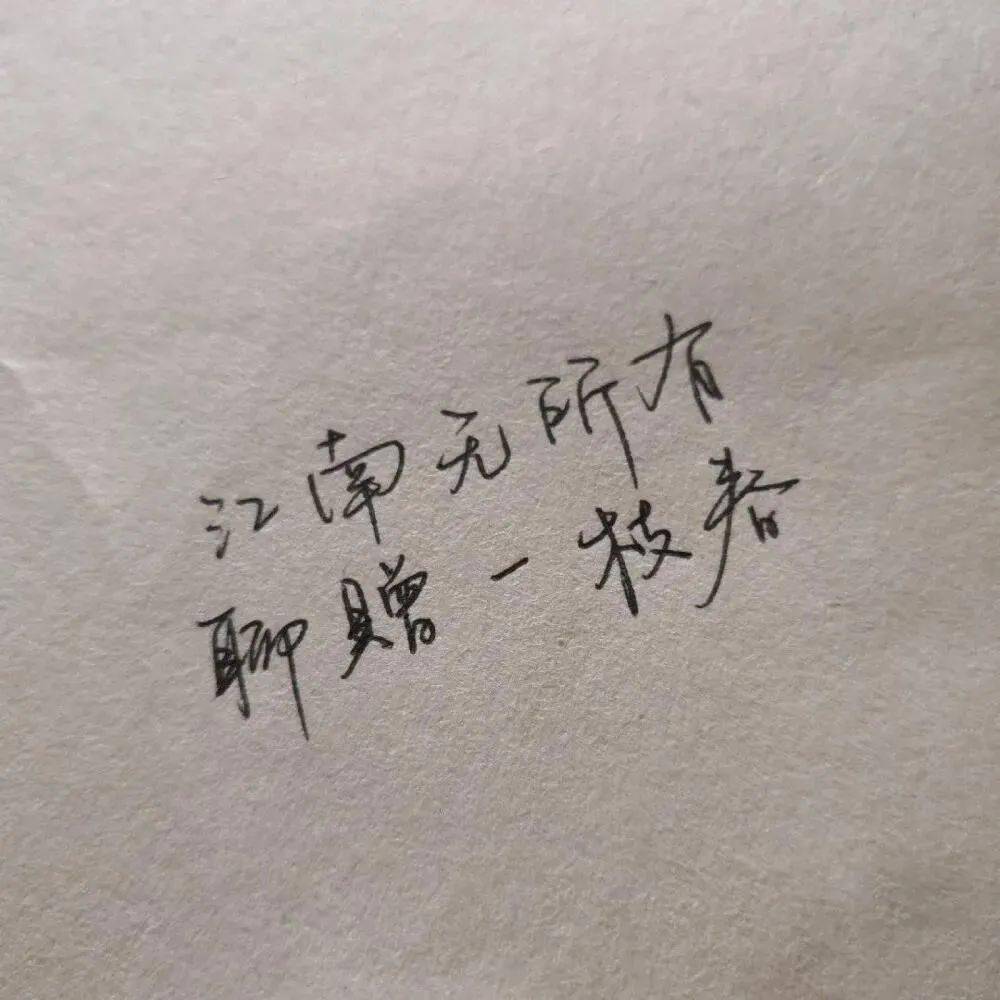 江南无所有
聊赠一枝春